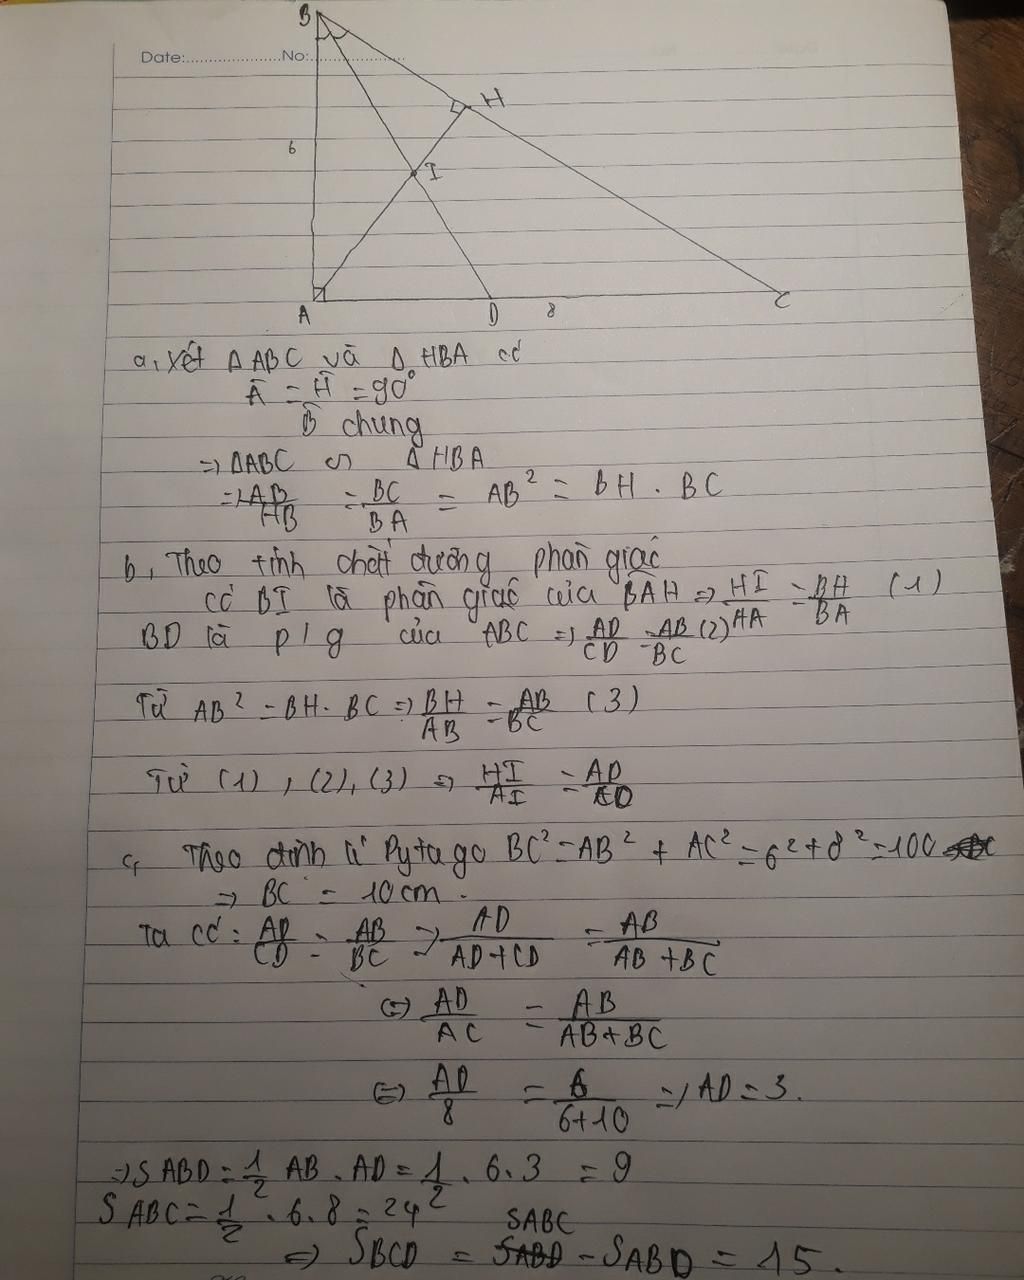 B
Date:.....................No:......................
H
6
I
A
D
8
C
a, Xét ΔABC và Δ HBA có
Â = Ĥ = 90°
B̂ chung
=> ΔABC ∽ Δ HBA
=> AB/HB = BC/BA = AB² = BH . BC
b, Theo tính chất đường phân giác
Có BI là phân giác của BAH => HI/HA = BH/BA (1)
BD là p/g của ABC => AD/CD = AB/BC (2)
Từ AB² = BH. BC => BH/AB = AB/BC (3)
Từ (1), (2), (3) => HI/AI = AD/CD
c, Theo định lí Pytago BC² = AB² + AC² = 6² + 8² = 100
=> BC = 10cm.
Ta có: AD/CD = AB/BC => AD/AD+CD = AB/AB+BC
<=> AD/AC = AB/AB+BC
<=> AD/8 = 6/6+10 => AD = 3.
=> S ABD = 1/2 AB . AD = 1/2 . 6.3 = 9
S ABC = 1/2 . 6.8 = 24
=> SBCD = SABC - SABD = 15.